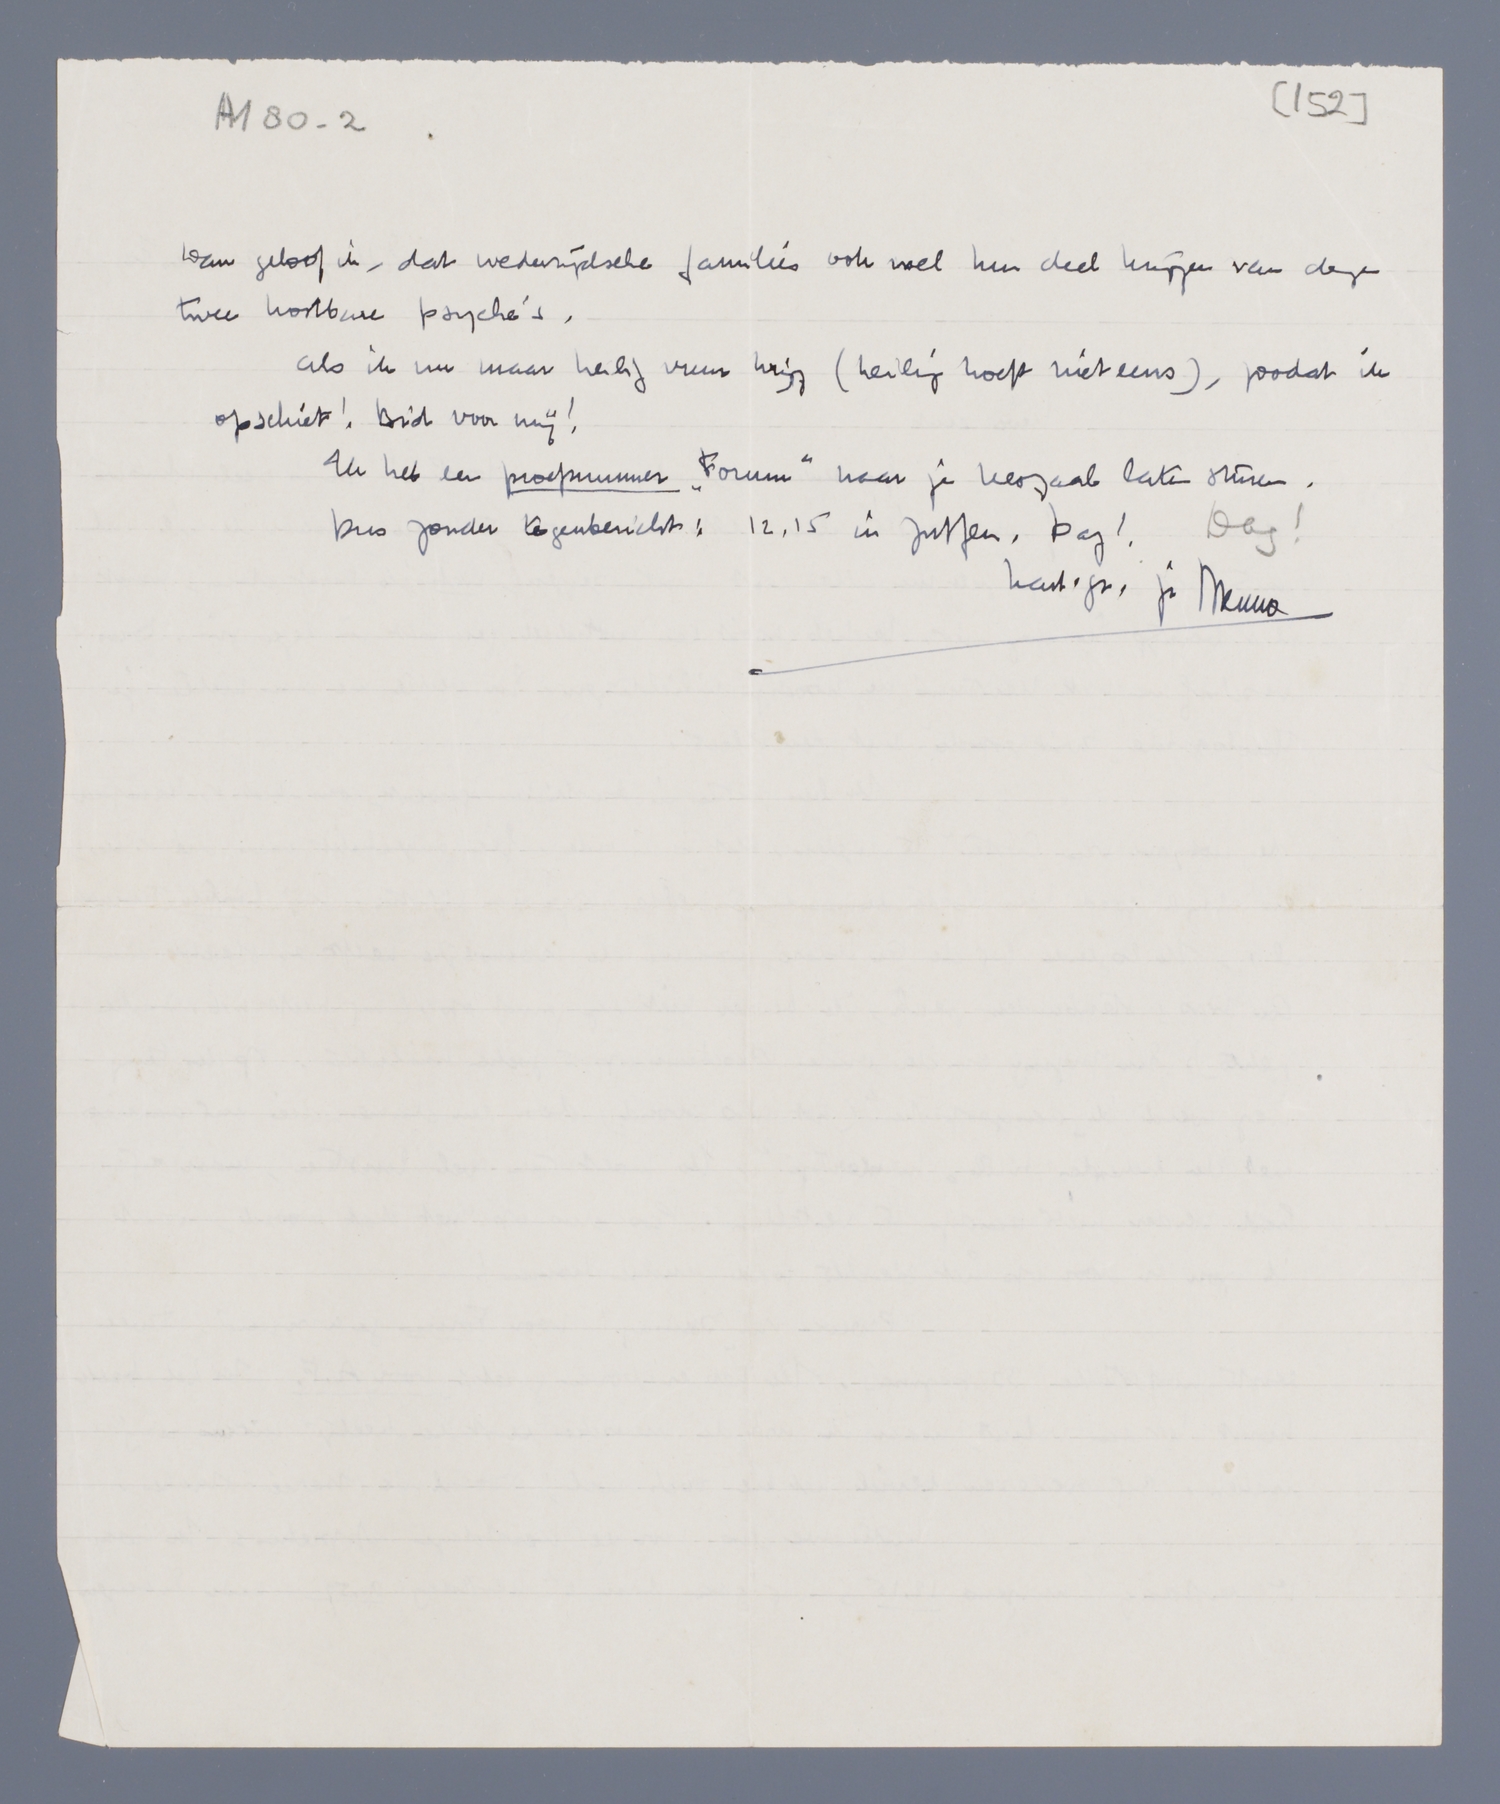 A180-2 [152]
Dan geloof ik, dat wederzijdsche families ook wel hun deel krijgen van deze
twee kostbare psyche's.
Als ik nu maar heilig vuur krijg (heilig hoeft niet eens), zoodat ik
opschiet! Bid voor mij!
Ik heb een proefnummer „Forum" naar je leeszaal laten sturen.
Dus zonder tegenbericht: 12.15 in Zutfen. Dag! Dag!
hart. gr. je Menno